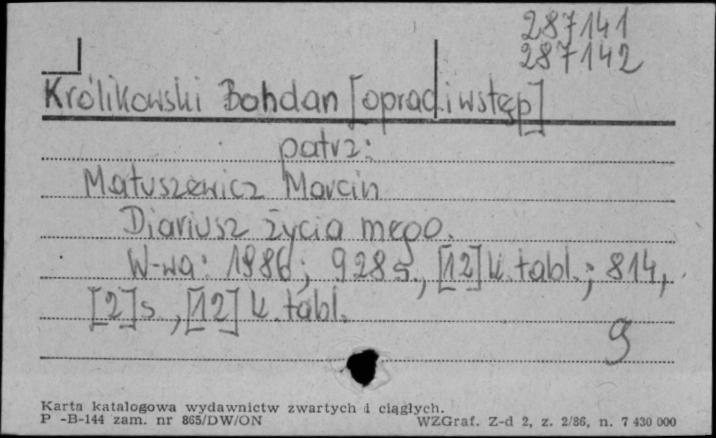 287141
287142
Królikowski Bohdan [oprac. i wstęp]
patrz:
Matuszewicz Marcin
Diariusz życia mego.
W-wa: 1986; 928 s., [12] k. tabl.; 814,
[2] s., [12] k. tabl.
g
Karta katalogowa wydawnictw zwartych i ciągłych.
P -B-144 zam. nr 865/DW/ON WZGraf. Z-d 2, z. 2/86, n. 7 430 000